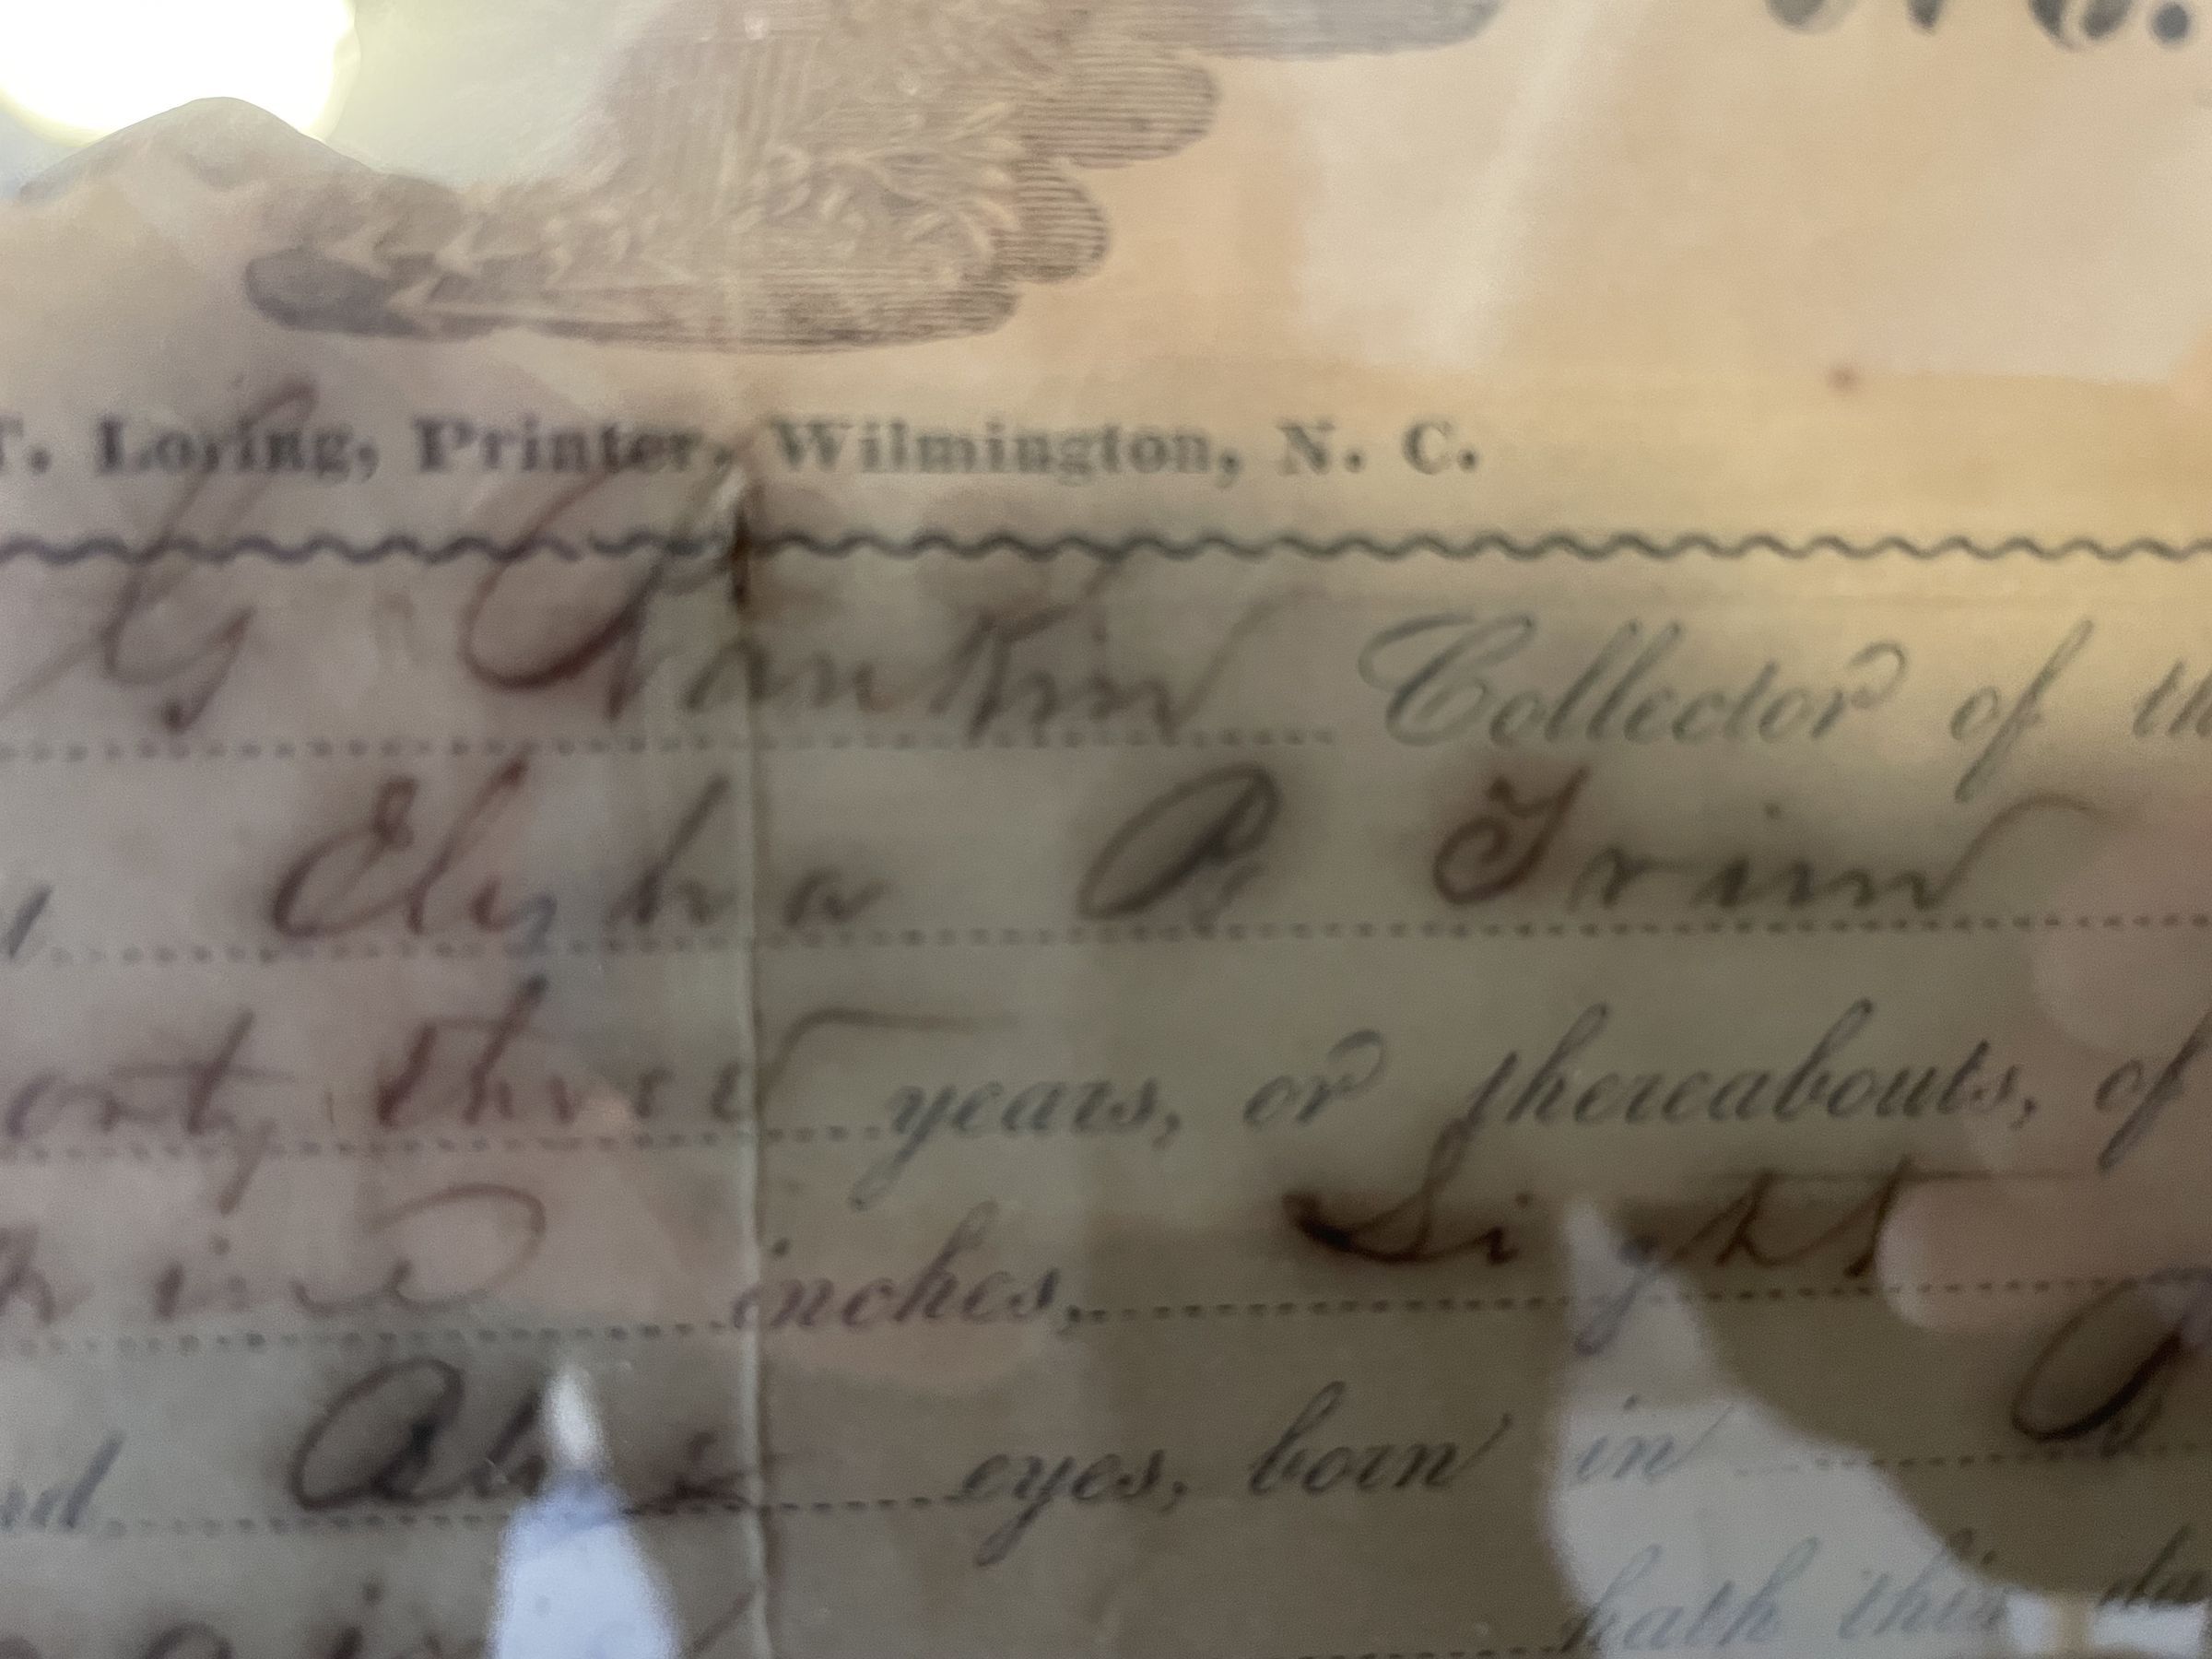 T. Loring, Printer, Wilmington, N. C.
G Rankin Collector of th
Elisha P Trim
orty three years, or thereabouts, of
inches, Light
eyes, born in
hath this da